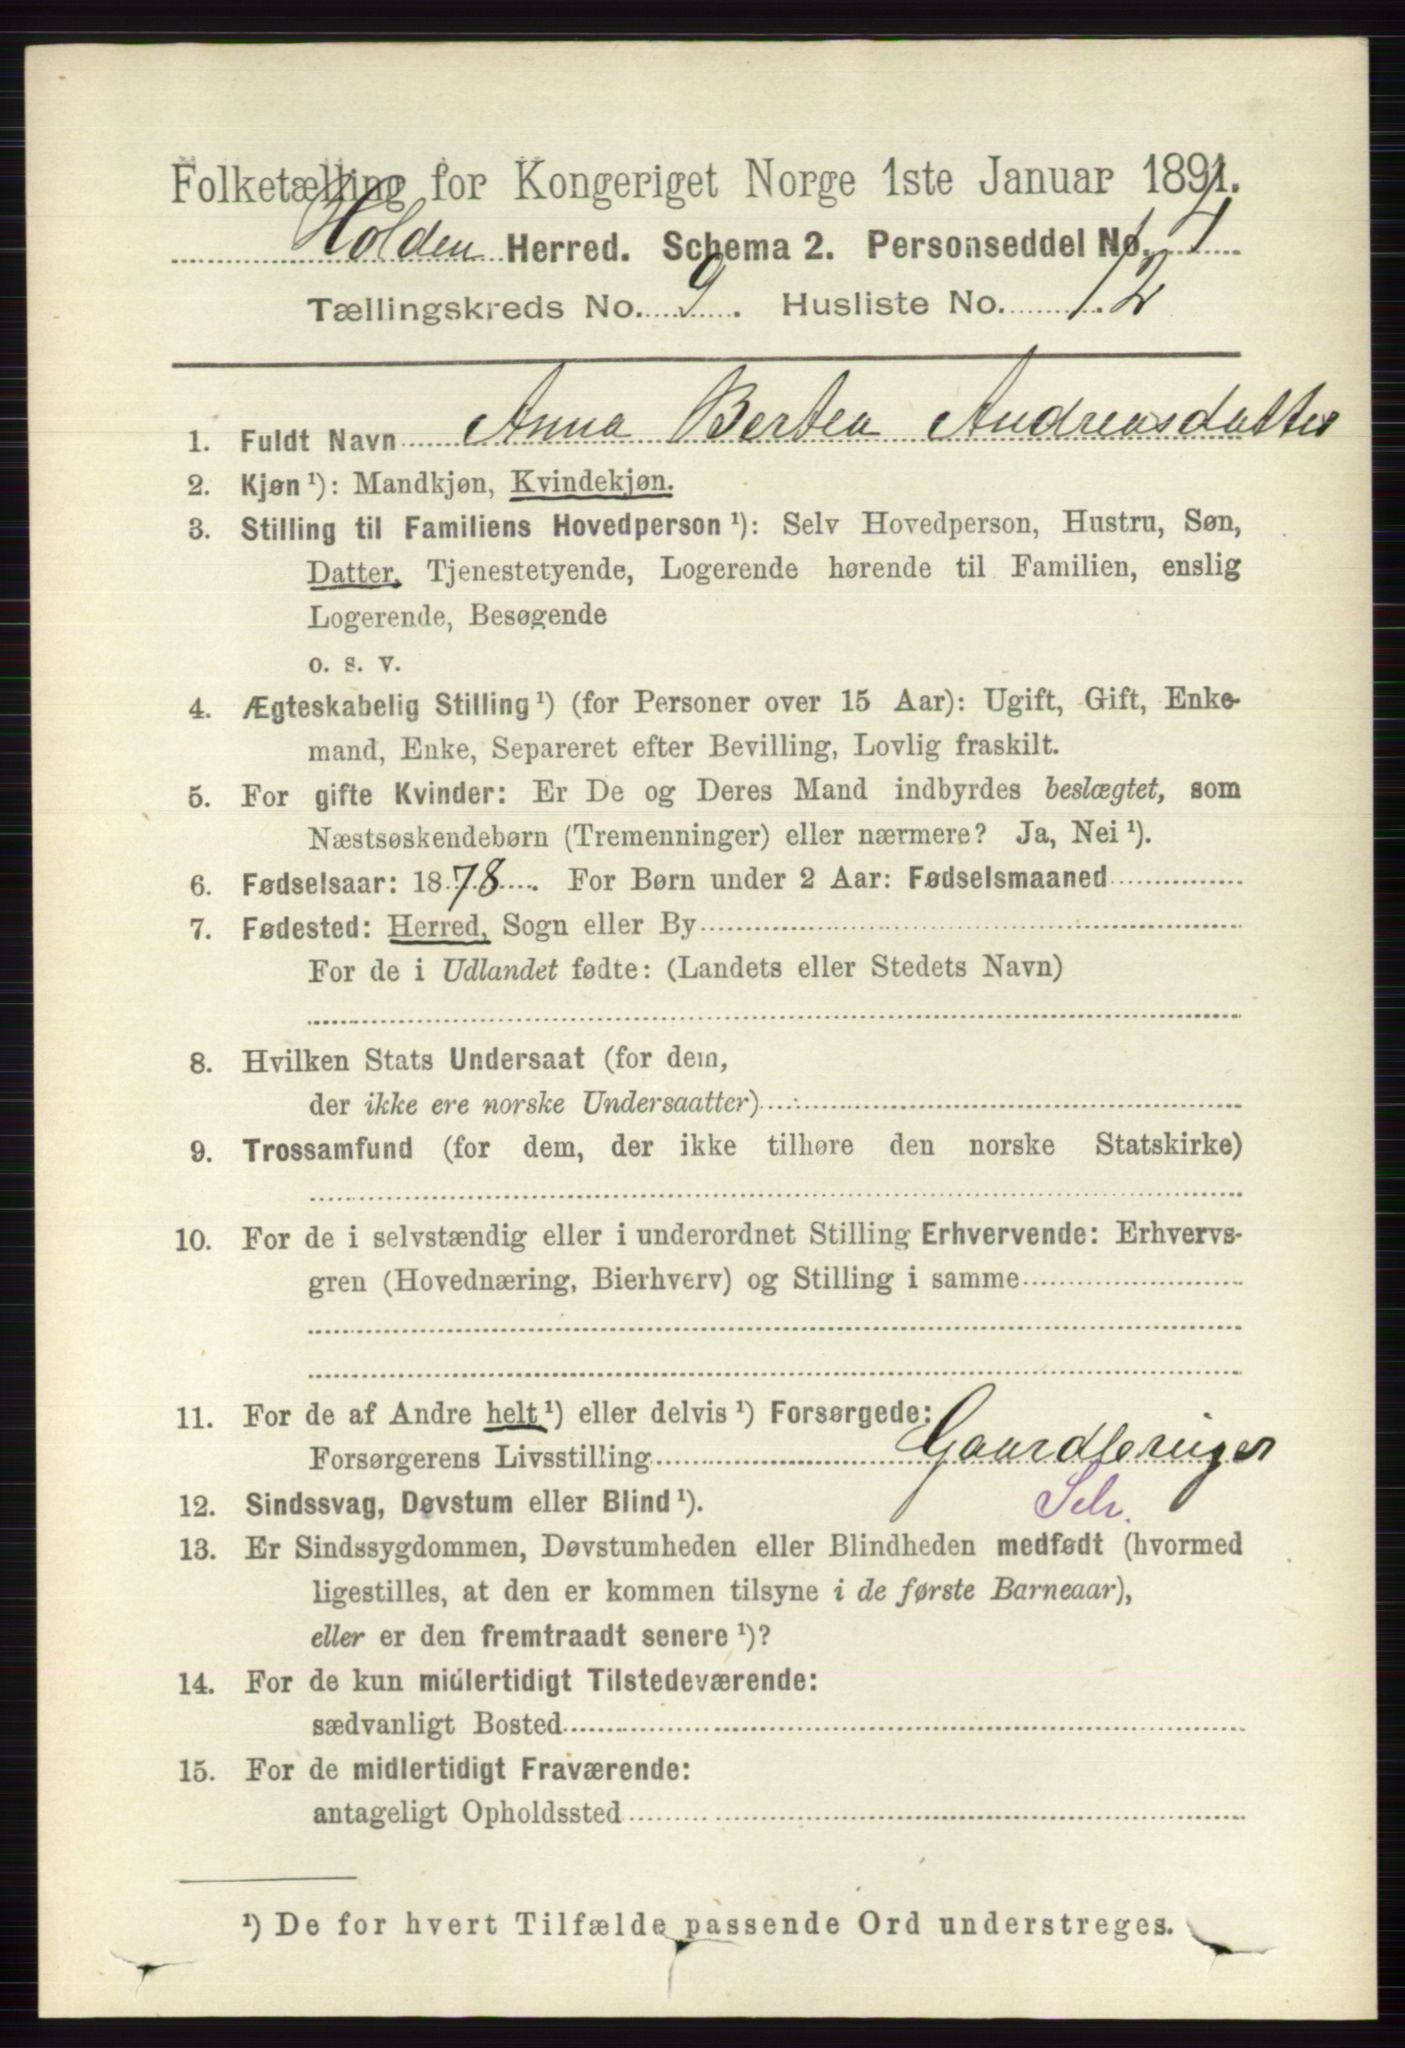 Folketælling for Kongeriget Norge 1ste Januar 1891.
Holden Herred. Schema 2. Personseddel No. 4
Tællingskreds No. 9. Husliste No. 12
1. Fuldt Navn Anna Bertea Andreasdatter
2. Kjøn ¹): Mandkjøn, Kvindekjøn.
3. Stilling til Familiens Hovedperson ¹): Selv Hovedperson, Hustru, Søn,
Datter, Tjenestetyende, Logerende hørende til Familien, enslig
Logerende, Besøgende
o. s. v.
4. Ægteskabelig Stilling ¹) (for Personer over 15 Aar): Ugift, Gift, Enke-
mand, Enke, Separeret efter Bevilling, Lovlig fraskilt.
5. For gifte Kvinder: Er De og Deres Mand indbyrdes beslægtet, som
Næstsøskendebørn (Tremenninger) eller nærmere? Ja, Nei ¹).
6. Fødselsaar: 1878. For Børn under 2 Aar: Fødselsmaaned
7. Fødested: Herred, Sogn eller By
For de i Udlandet fødte: (Landets eller Stedets Navn)
8. Hvilken Stats Undersaat (for dem,
der ikke ere norske Undersaatter)
9. Trossamfund (for dem, der ikke tilhøre den norske Statskirke)
10. For de i selvstændig eller i underordnet Stilling Erhvervende: Erhvervs-
gren (Hovednæring, Bierhverv) og Stilling i samme
11. For de af Andre helt ¹) eller delvis ¹) Forsørgede:
Forsørgerens Livsstilling Gaardbruger
12. Sindssvag, Døvstum eller Blind ¹). Selv.
13. Er Sindssygdommen, Døvstumheden eller Blindheden medfødt (hvormed
ligestilles, at den er kommen tilsyne i de første Barneaar),
eller er den fremtraadt senere ¹)?
14. For de kun midlertidigt Tilstedeværende:
sædvanligt Bosted
15. For de midlertidigt Fraværende:
antageligt Opholdssted
¹) De for hvert Tilfælde passende Ord understreges.